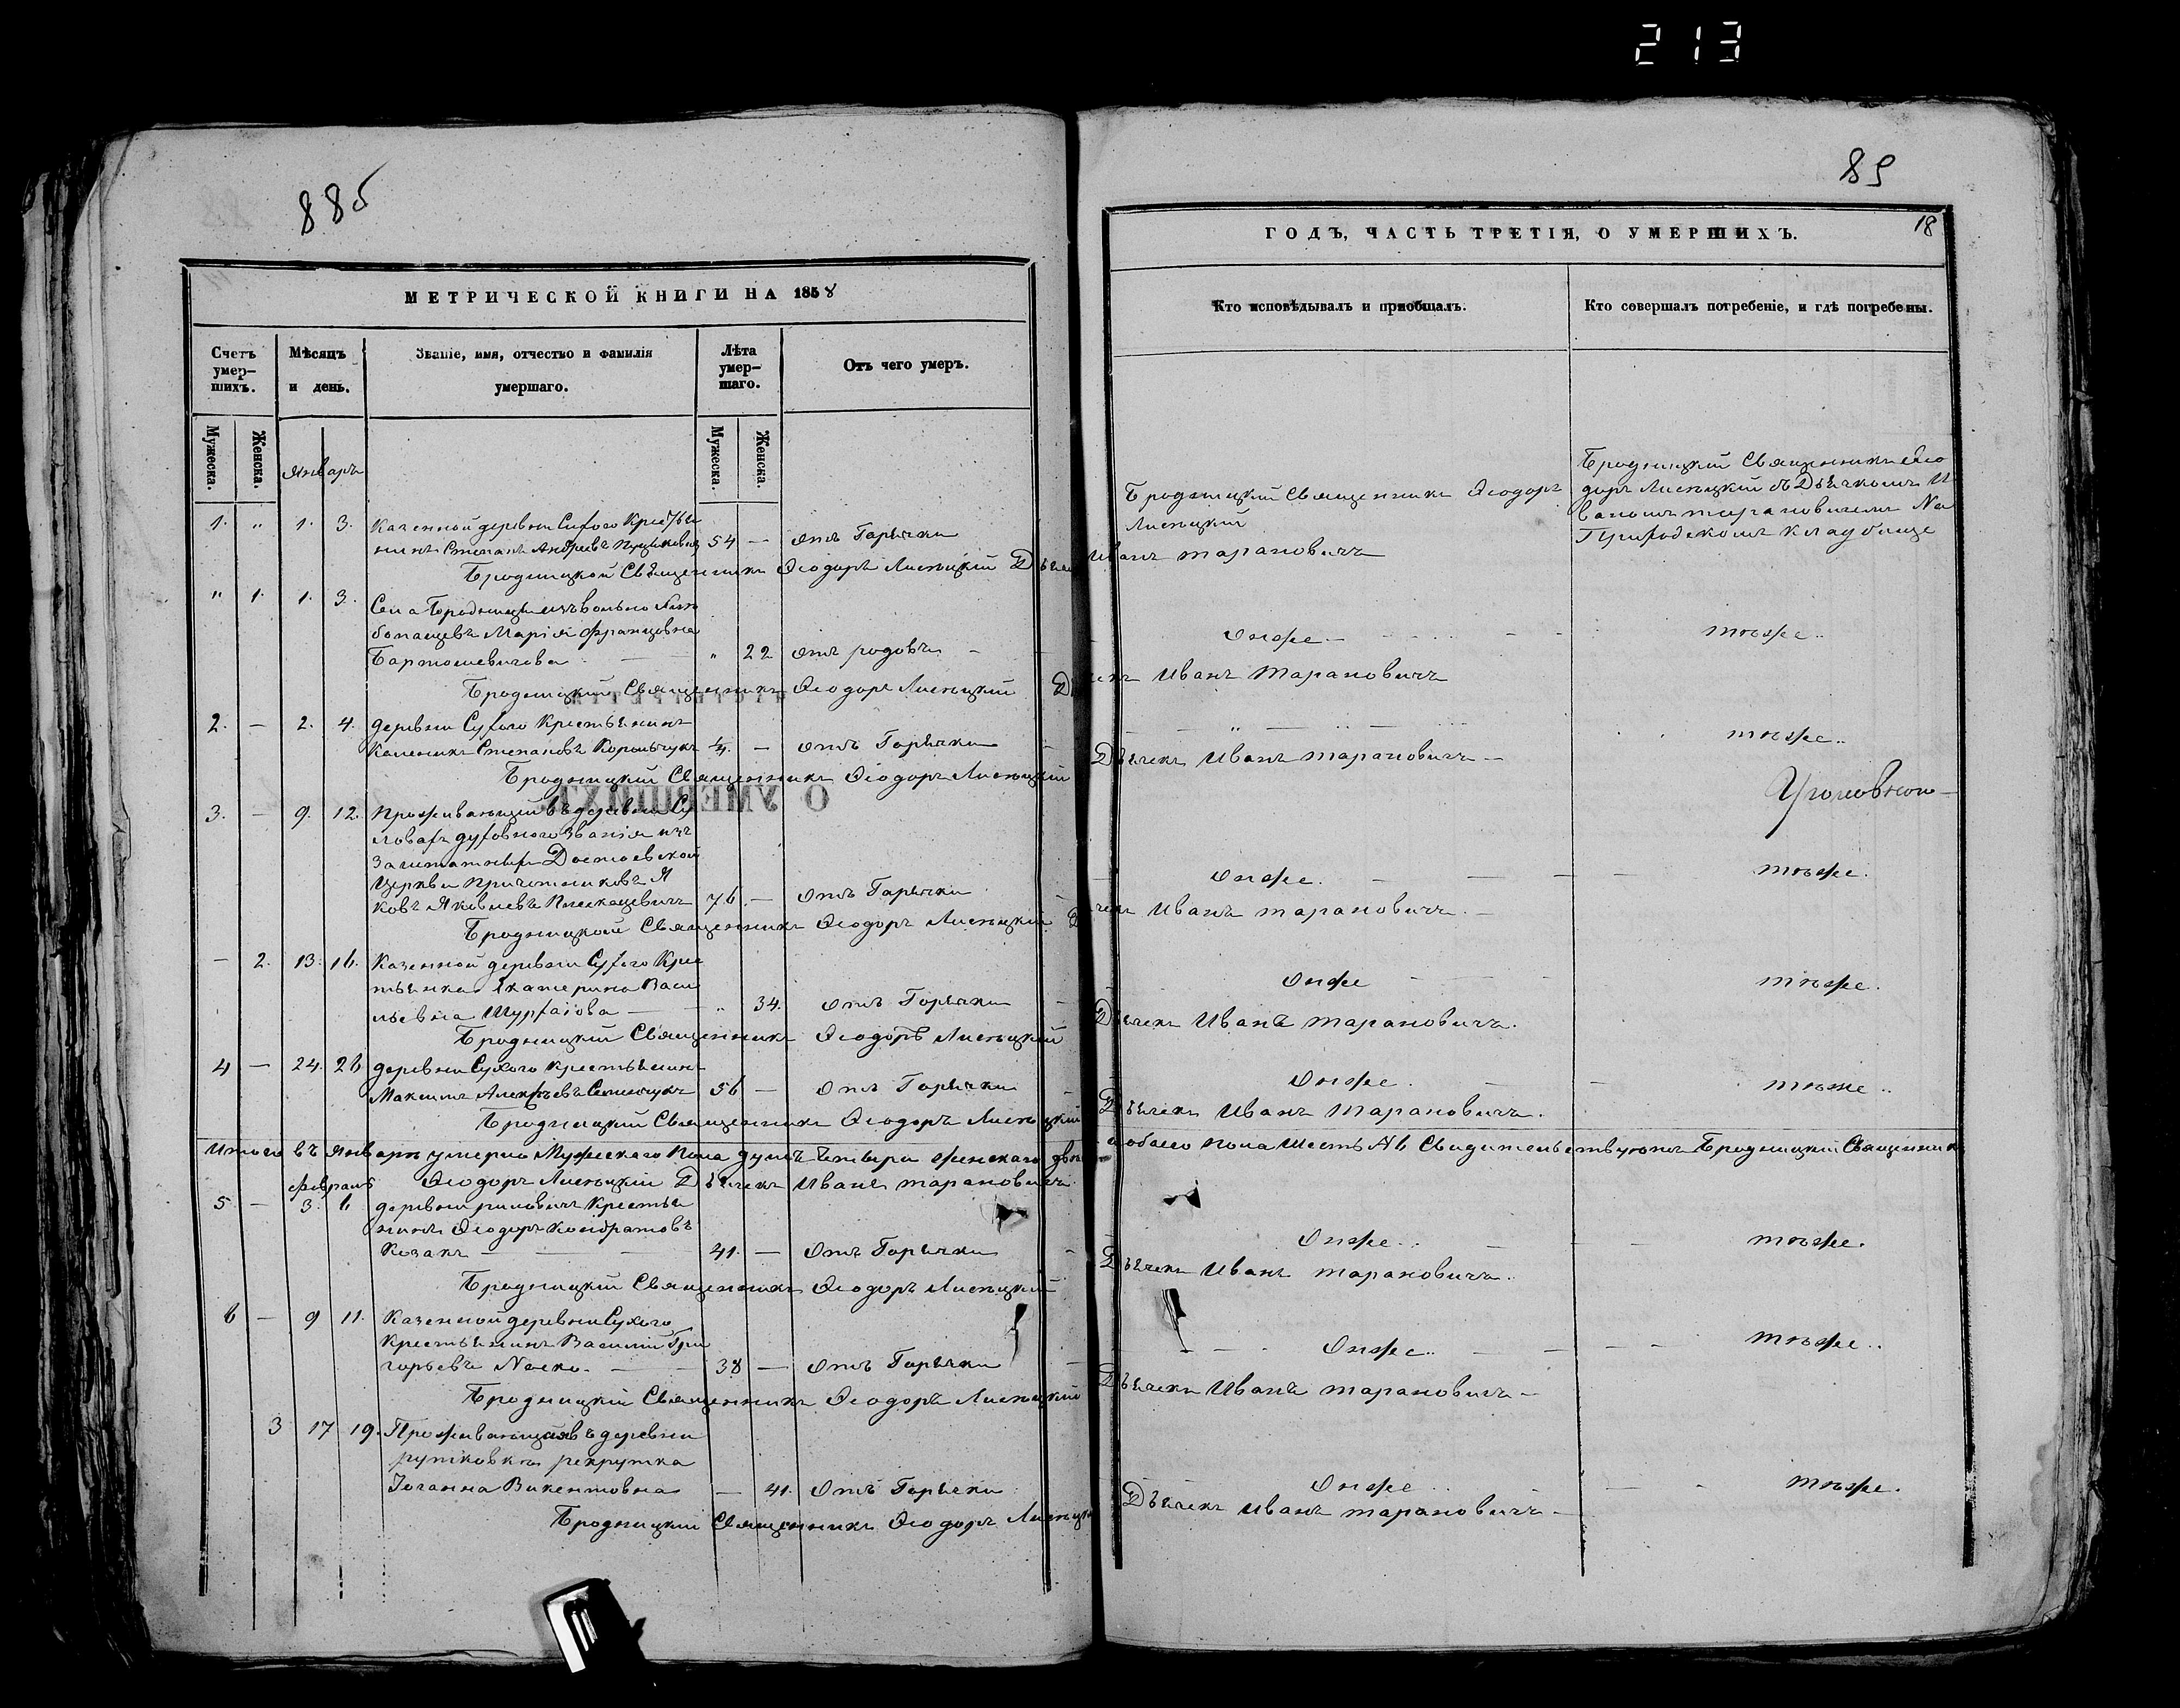 213
885
89
МЕТРИЧЕСКОЙ КНИГИ НА 1858
ГОДЪ, ЧАСТЬ ТРЕТІЯ, О УМЕРШИХЪ.
18
Счетъ умер-
шихъ.
Мѣсяцъ
и день.
Званіе, имя, отчество и фамилія
умершаго.
Лѣта
умер-
шаго.
Отъ чего умеръ.
Кто исповѣдывалъ и пріобщалъ.
Кто совершалъ погребеніе, и гдѣ погребены.
Мужеска.
Женска.
Мужеска.
Женска.
Январь
1. „ 1. 3. Казенной деревни Сухого Кресть
нинъ Степанъ Андреевъ 54 — отъ Горячки
Бродницкій Священникъ Ѳеодоръ
Лисицкій
Бродницкій Священникъ Ѳео
доръ Лисицкій съ Дьячкомъ И
ваномъ Тарановичемъ На
Приходскомъ кладбище
Бродницкой Священникъ Ѳеодоръ Лисицкій Дьячекъ Иванъ Тарановичъ
„ 1. 1. 3. Села Бродницы изъ вольно
Марія Францовна
Бартошевичева — „ 22 отъ родовъ — Онже — тѣже..
Бродницкій Священникъ Ѳеодоръ Лисицкій Дьячекъ Иванъ Тарановичъ
2. — 2. 4. деревни Сухого Крестьянинъ
Каленикъ Степановъ Корольчукъ ¼. — отъ Горячки „ тѣже..
Бродницкій Священникъ Ѳеодоръ Лисицкій Дьячекъ Иванъ Тарановичъ —
3. — 9. 12. Проживающій въ деревни Су
духовнаго званія изъ
заштатныхъ Достоевской
Церкви причетниковъ Я
ковъ Яковлевъ 76 — Отъ Горячки Онже. — тѣже.
Бродницкой Священникъ Ѳеодоръ Лисицкій Дьячекъ Иванъ Тарановичъ. —
— 2. 13. 16. Казенной деревни Сухого Крес
тьянка Екатерина Васи
льевна — „ 34. Отъ Горячки Онже тѣже.
Бродницкій Священникъ Ѳеодоръ Лисицкій Дьячекъ Иванъ Тарановичъ.
4 — 24. 26 деревни Сухого Крестьянин
Максимъ Алексѣевъ 56 — Отъ Горячки Онже. — тѣже..
Бродницкій Священникъ Ѳеодоръ Лисицкій Дьячекъ Иванъ Тарановичъ.
Итого въ Январѣ умерло Мужескаго Пола душъ Четыри женскаго двѣ а обоего пола Шесть Свидетельствуютъ Бродницкій Священникъ
Ѳеодоръ Лисицкій Дьячекъ Иванъ Тарановичъ.
Февраль
5 — 3. 6 деревни Крестья
нинъ Ѳеодоръ Кондратовъ
Козакъ — 41. — Отъ Горячки Онже.. — тѣже.
Бродницкій Священникъ Ѳеодоръ Лисицкій Дьячекъ Иванъ Тарановичъ.
6 — 9 11. Казенной деревни Сухого
Крестьянинъ Василій Гри
горьевъ — 38 — Отъ Горячки Онже.. — тѣже..
Бродницкій Священникъ Ѳеодоръ Лисицкій Дьячекъ Иванъ Тарановичъ —
3 17 19. Проживающая въ деревни
рутковкѣ рекрутка
Іоганна Викентовна — 41. Отъ Горячки Онже.. — тѣже.
Бродницкій Священникъ Ѳеодоръ Лисицкій Дьячекъ Иванъ Тарановичъ —